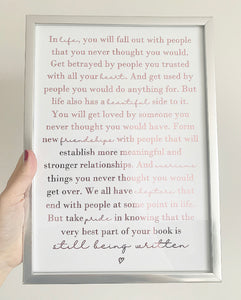 In life, you will fall out with people
that you never thought you would.
Get betrayed by people you trusted
with all your heart. And get used by
people you would do anything for. But
life also has a beautiful side to it.
You will get loved by someone you
never thought you would have. Form
new friendships with people that will
establish more meaningful and
stronger relationships. And overcome
things you never thought you would
get over. We all have chapters that
end with people at some point in life.
But take pride in knowing that the
very best part of your book is
still being written